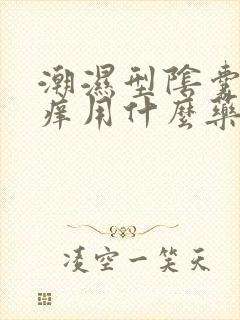 潮濕型陰囊
痒用什麼藥
凌空一笑天